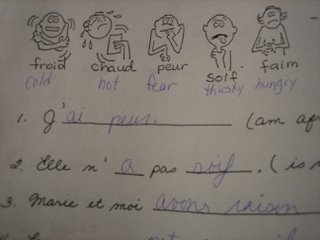 froid chaud peur soif faim
cold hot fear thirsty hungry
1. J'ai peur. (am
2. Elle n'a pas soif. (is
3. Marie et moi avons raison